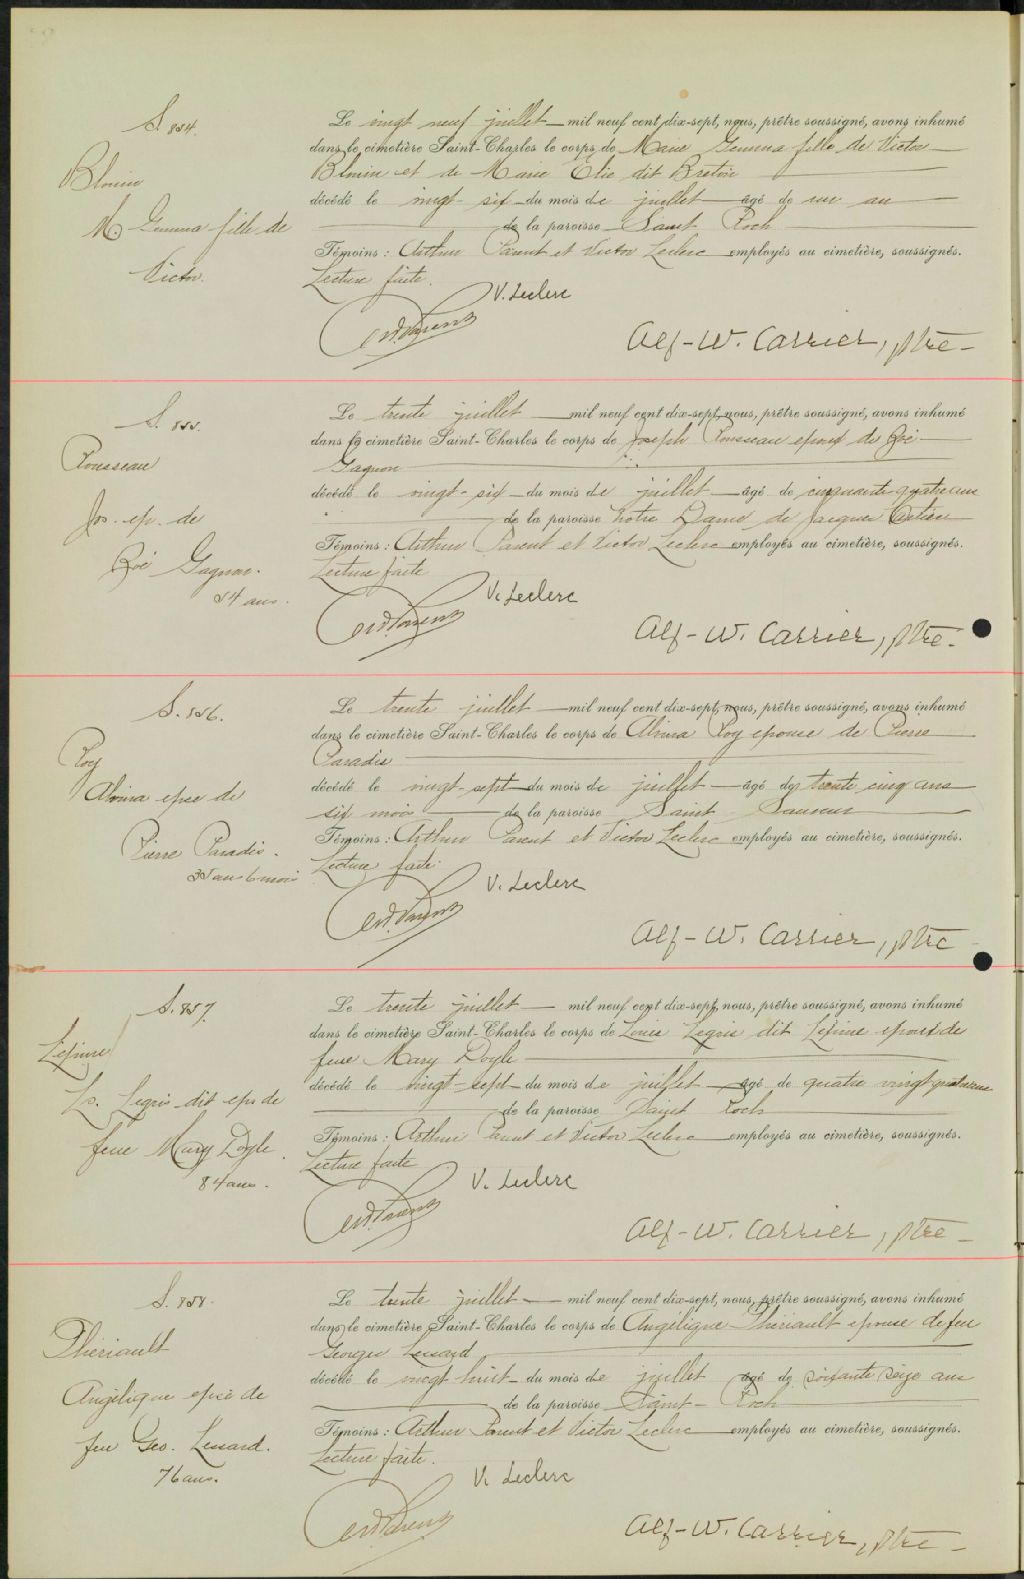 S. 854.
Blouin
M. Gemma fille de
Victor.
Le vingt neuf juillet mil neuf cent dix-sept, nous, prêtre soussigné, avons inhumé
dans le cimetière Saint-Charles le corps de Marie Gemma fille de Victor
Blouin et de Marie Elie dit Breton
décédé le vingt-six du mois de juillet âgé de un an
de la paroisse Saint Roch
Témoins : Arthur Parent et Victor Leclerc employés au cimetière, soussignés.
Lecture faite.
V. Leclerc
Art. Parent
Alf-W. Carrier, ptre-
S. 855.
Rousseau
Jos. ep. de
Zoé Gagnon.
54 ans.
Le trente juillet mil neuf cent dix-sept, nous, prêtre soussigné, avons inhumé
dans le cimetière Saint-Charles le corps de Joseph Rousseau epoux de Zoé
Gagnon
décédé le vingt-six du mois de juillet âgé de cinquante quatre ans
de la paroisse Notre Dame de Jacques Cartier
Témoins : Arthur Parent et Victor Leclerc employés au cimetière, soussignés.
Lecture faite
V. Leclerc
Art. Parent
Alf-W. Carrier, ptre-
S. 856.
Roy
Alvina epse de
Pierre Paradis.
35 ans 6 mois
Le trente juillet mil neuf cent dix-sept, nous, prêtre soussigné, avons inhumé
dans le cimetière Saint-Charles le corps de Alvina Roy epouse de Pierre
Paradis
décédé le vingt-sept du mois de juillet âgé de trente cinq ans
six mois de la paroisse Saint-Sauveur
Témoins : Arthur Parent et Victor Leclerc employés au cimetière, soussignés.
Lecture faite
V. Leclerc
Art. Parent
Alf-W. Carrier, ptre-
S. 857.
Lépine
Ls. Legris dit epx de
feue Mary Doyle.
84 ans.
Le trente juillet mil neuf cent dix-sept, nous, prêtre soussigné, avons inhumé
dans le cimetière Saint-Charles le corps de Louis Legris dit Lépine epoux de
feue Mary Doyle
décédé le vingt-sept du mois de juillet âgé de quatre vingt quatre ans
de la paroisse Saint Roch
Témoins : Arthur Parent et Victor Leclerc employés au cimetière, soussignés.
Lecture faite
V. Leclerc
Art. Parent
Alf-W. Carrier, ptre-
S. 858.
Thériault
Angélique epse de
feu Geo. Lessard.
76 ans.
Le trente juillet mil neuf cent dix-sept, nous, prêtre soussigné, avons inhumé
dans le cimetière Saint-Charles le corps de Angélique Thériault epouse de feu
Georges Lessard
décédé le vingt huit du mois de juillet âgé de soixante seize ans
de la paroisse Saint-Roch
Témoins : Arthur Parent et Victor Leclerc employés au cimetière, soussignés.
Lecture faite.
V. Leclerc
Art. Parent
Alf-W. Carrier, ptre-